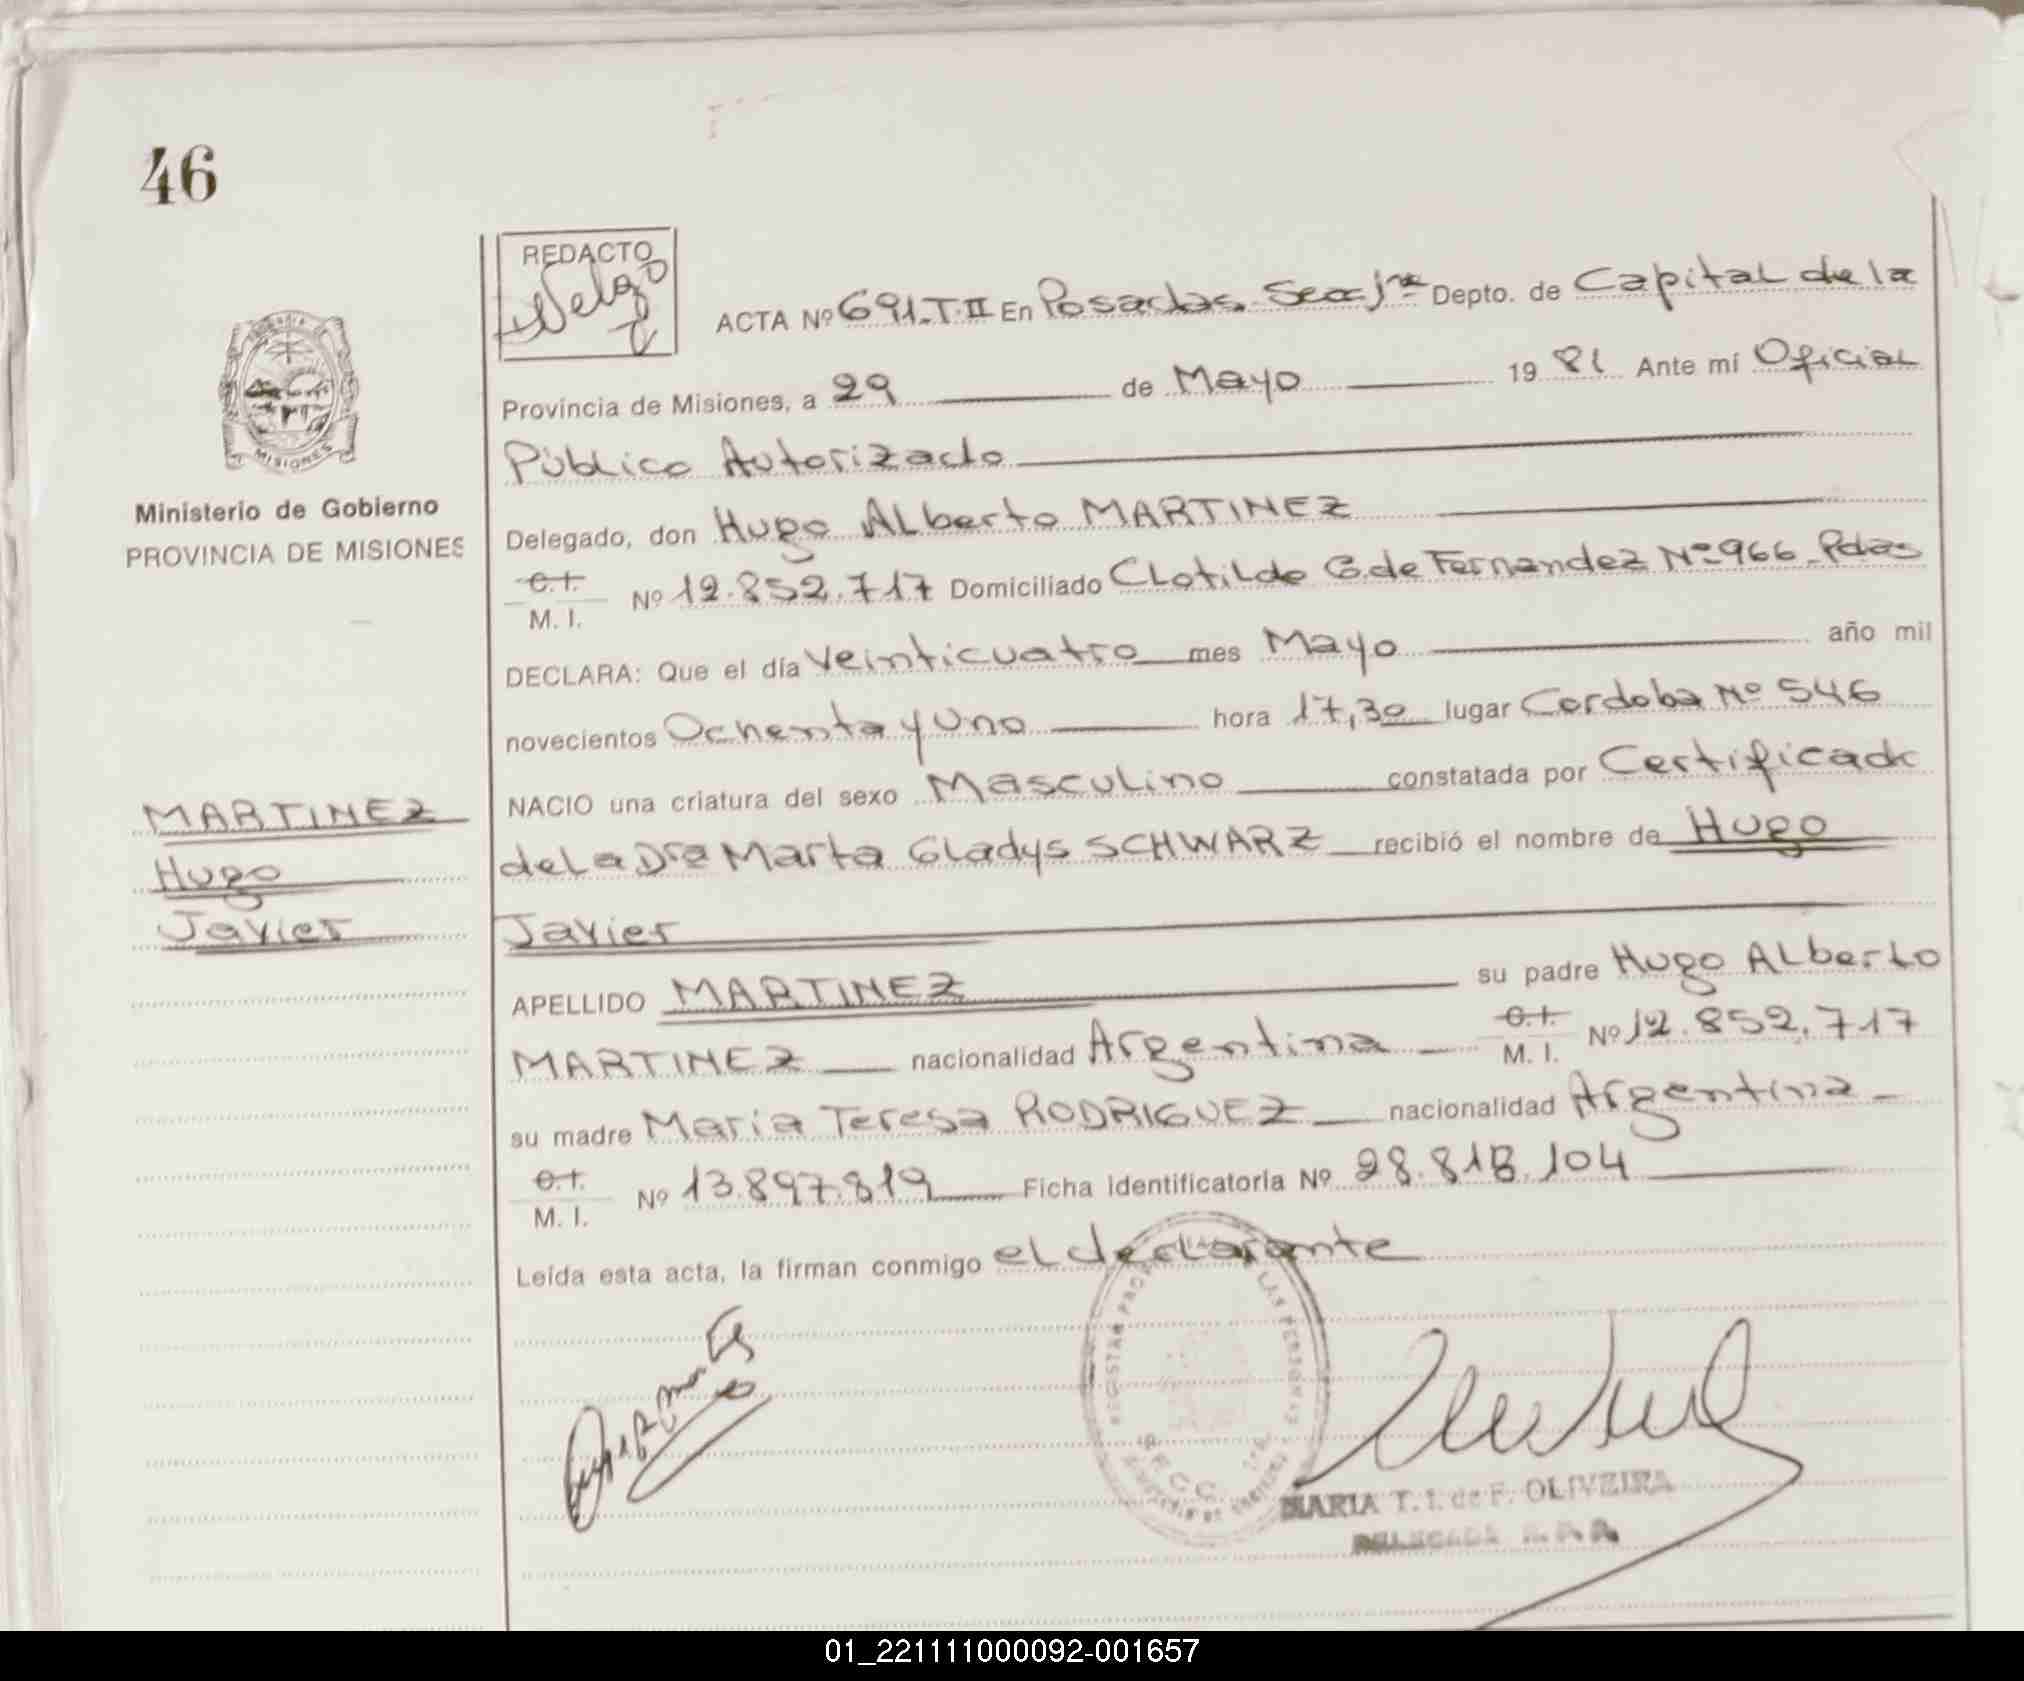 46
REDACTO
ACTA Nº 691-T-II En Posadas Secc 1ra Depto. de Capital de la
Provincia de Misiones, a 29 de Mayo 1981 Ante mí Oficial
Público Autorizado
Ministerio de Gobierno
PROVINCIA DE MISIONES
Delegado, don Hugo ALberto MARTINEZ
C.I. M. I. Nº 12.852.717 Domiciliado CLotilde G.de Fernandez Nº 966-Pdas
DECLARA: Que el día Veinticuatro mes Mayo año mil
novecientos Ochenta y Uno hora 17,30 lugar Cordoba Nº 546
NACIO una criatura del sexo Masculino constatada por Certificado
MARTINEZ
Hugo
Javier
de La Dra Marta GLadys SCHWARZ recibió el nombre de Hugo
Javier
APELLIDO MARTINEZ su padre Hugo ALberto
MARTINEZ nacionalidad Argentina C.I. M. I. Nº 12.852.717
su madre Maria Teresa RODRIGUEZ nacionalidad Argentina
C.I. M. I. Nº 13.897.819 Ficha Identificatoria Nº 28.818.104
Leída esta acta, la firman conmigo el declarante
MARIA T. I. de F. OLIVEIRA
DELEGADA
MISIONES
01_221111000092-001657